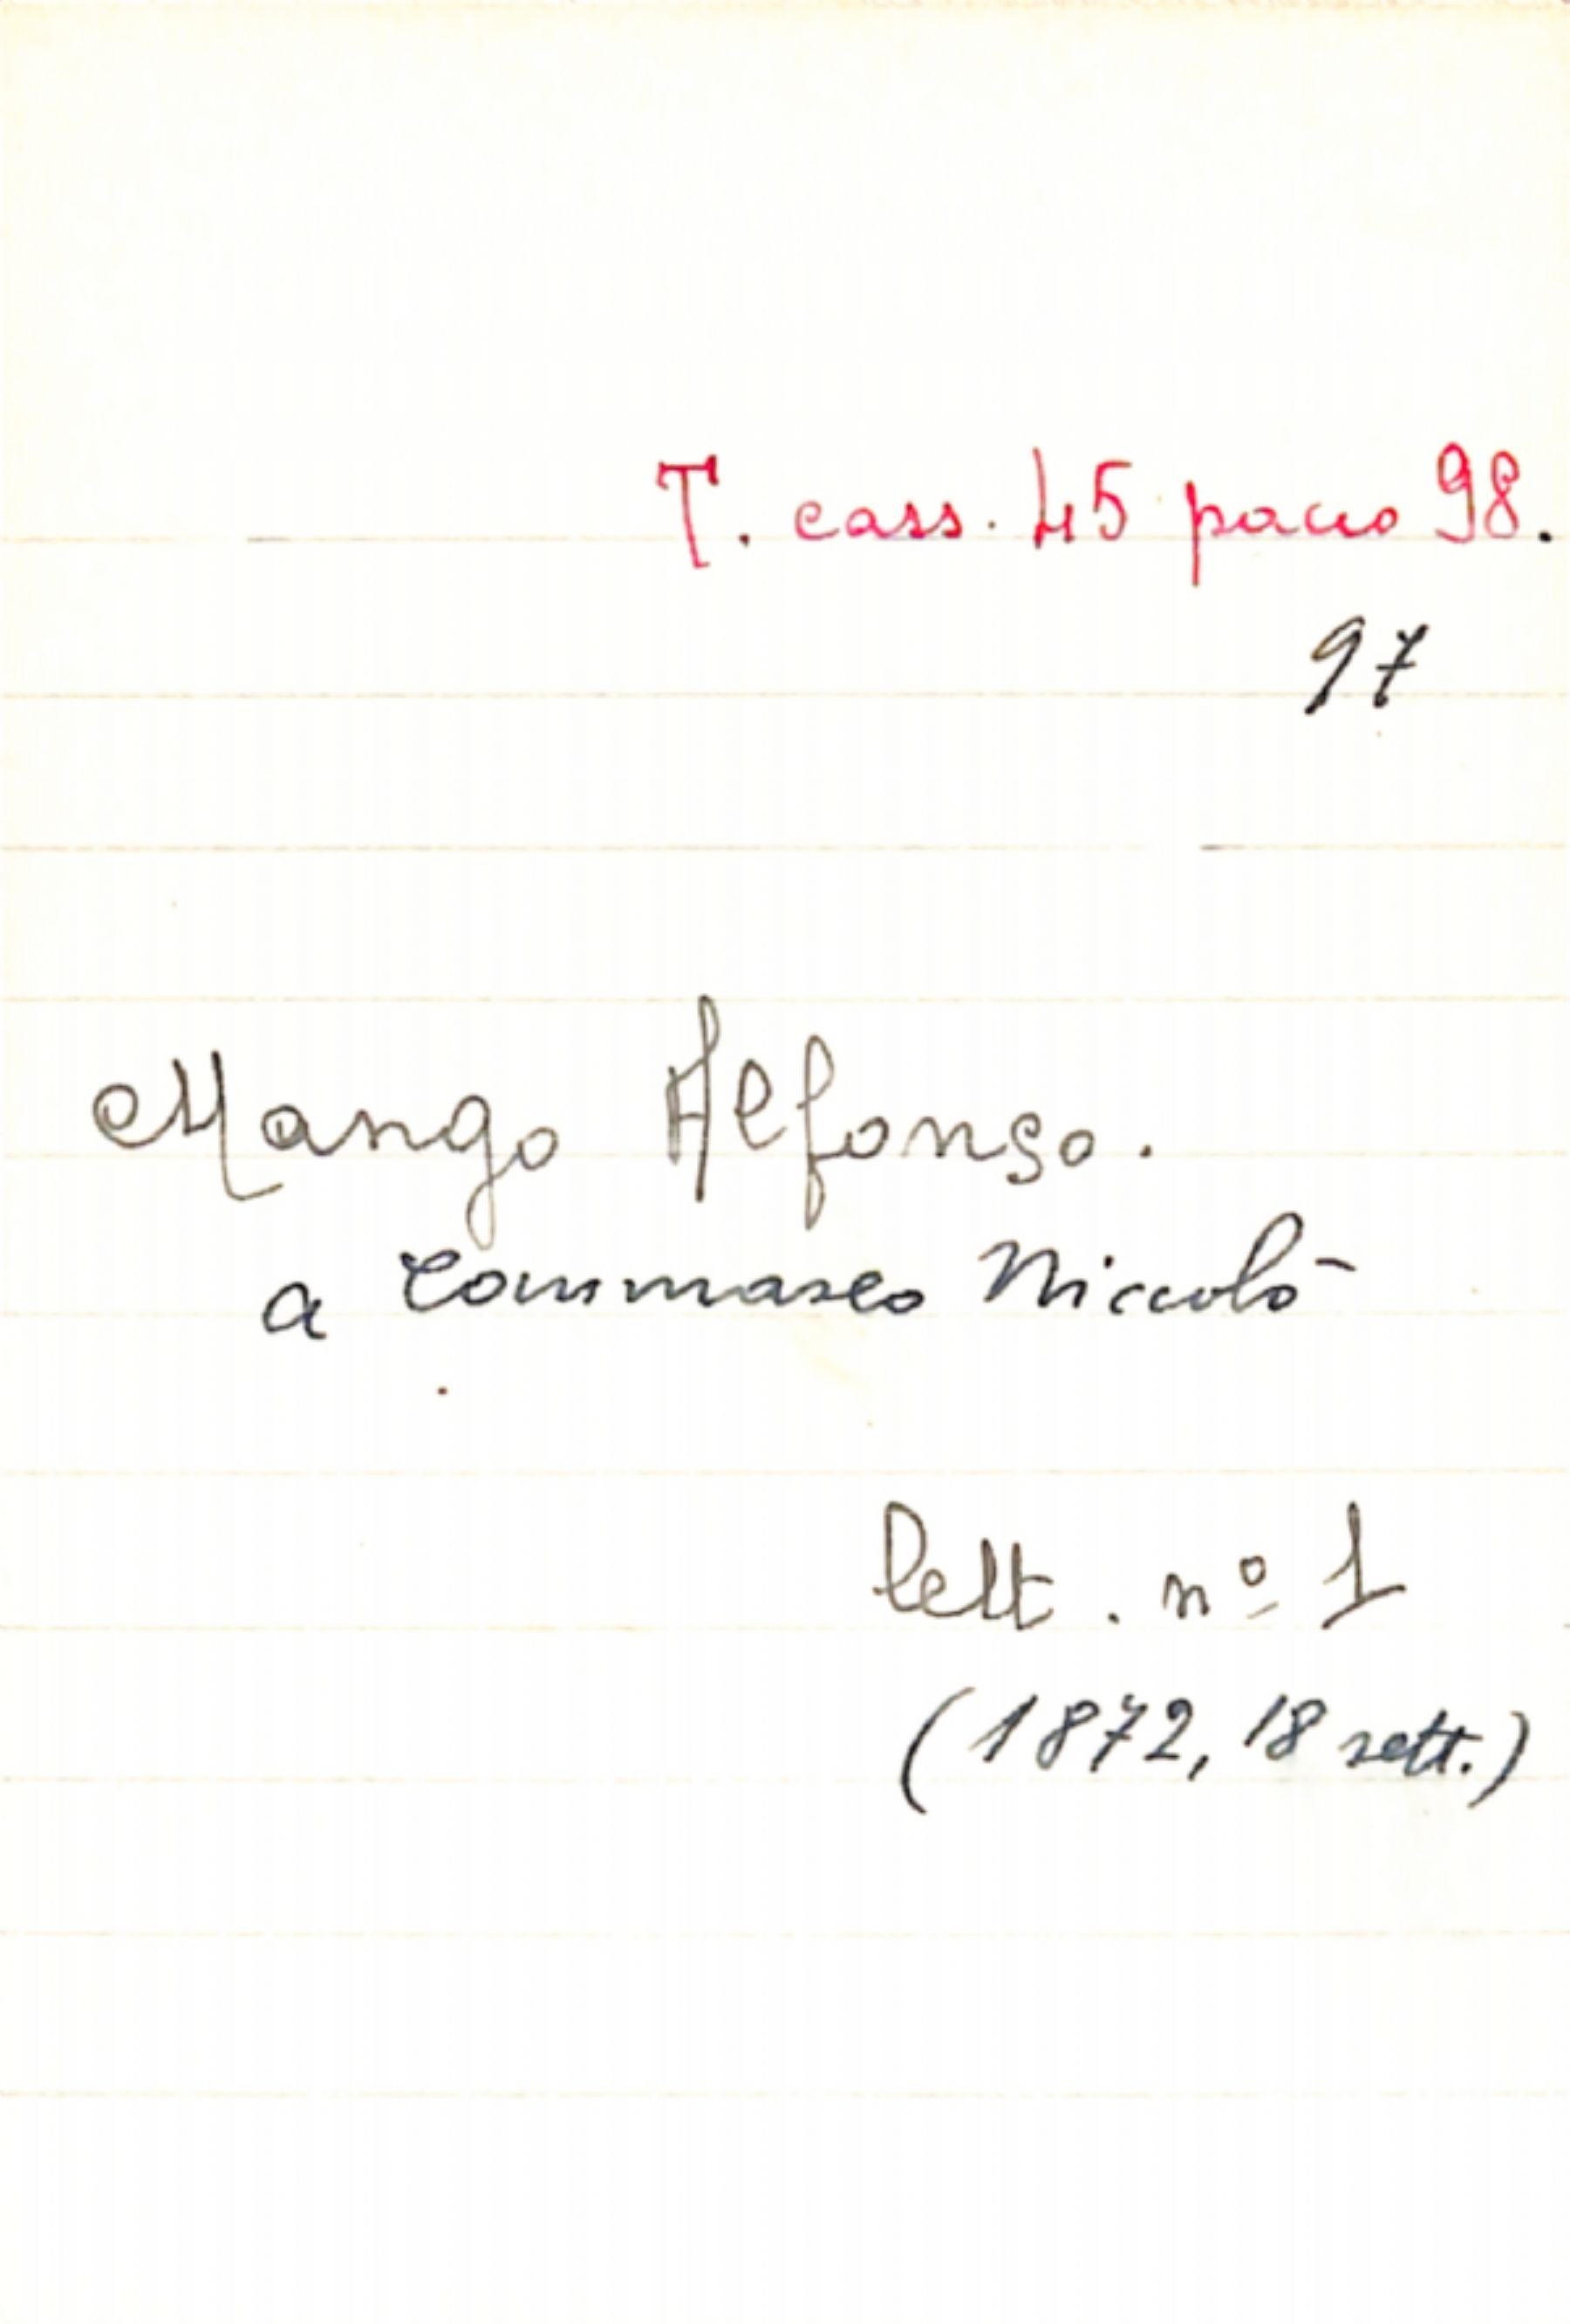 T. cass. 45 pacco 98.
97
Mango Alfonso.
a Tommaseo Niccolò
lett. nº 1
(1872, 18 sett.)